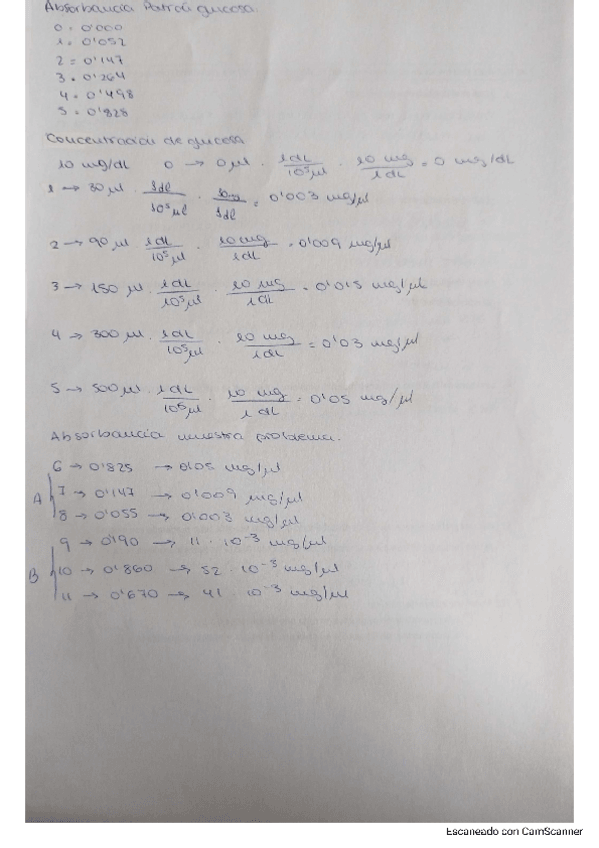 Absorbancia Patrón glucosa.
0 = 0'000
1 = 0'052
2 = 0'147
3 = 0'264
4 = 0'498
5 = 0'828
Concentración de glucosa
10 mg/dL 0 → 0 µl · 1dL/10⁵µl · 10 mg/1dL = 0 mg/dL
1 → 30 µl · 1dl/10⁵µl · 10mg/1dl = 0'003 mg/µl
2 → 90 µl 1dL/10⁵µl · 10mg/1dL = 0'009 mg/µl
3 → 150 µl · 1dL/10⁵µl · 10 mg/1dL = 0'015 mg/µL
4 → 300 µl · 1dL/10⁵µl · 10 mg/1dL = 0'03 mg/µl
5 → 500µl · 1dL/10⁵µl · 10 mg/1dL = 0'05 mg/µl
Absorbancia muestra problema.
6 → 0'825 → 0'05 mg/µl
A 7 → 0'147 → 0'009 mg/µl
8 → 0'055 → 0'003 mg/µl
9 → 0'190 → 11 · 10⁻³ mg/µl
B 10 → 0'860 → 52 · 10⁻³ mg/µl
11 → 0'670 → 41 · 10⁻³ mg/µl
Escaneado con CamScanner